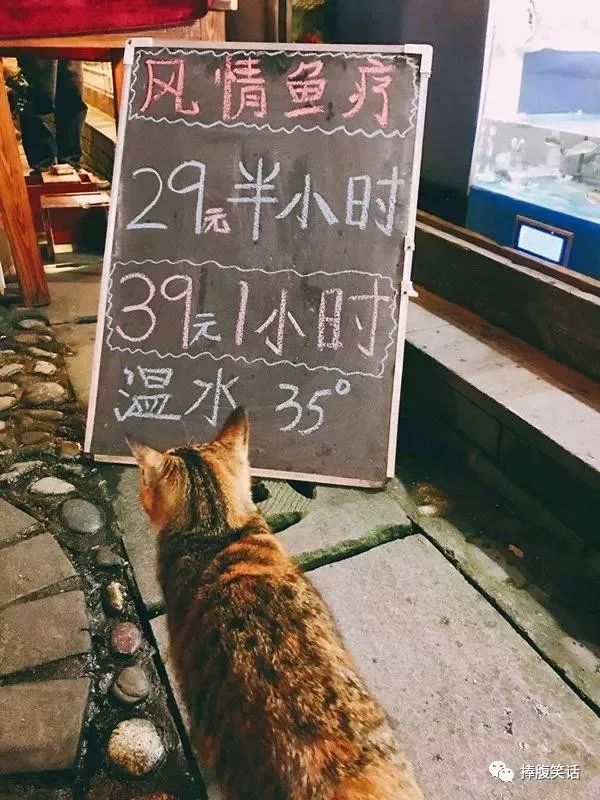 风情鱼疗
29元半小时
39元1小时
温水 35°
捧腹笑话